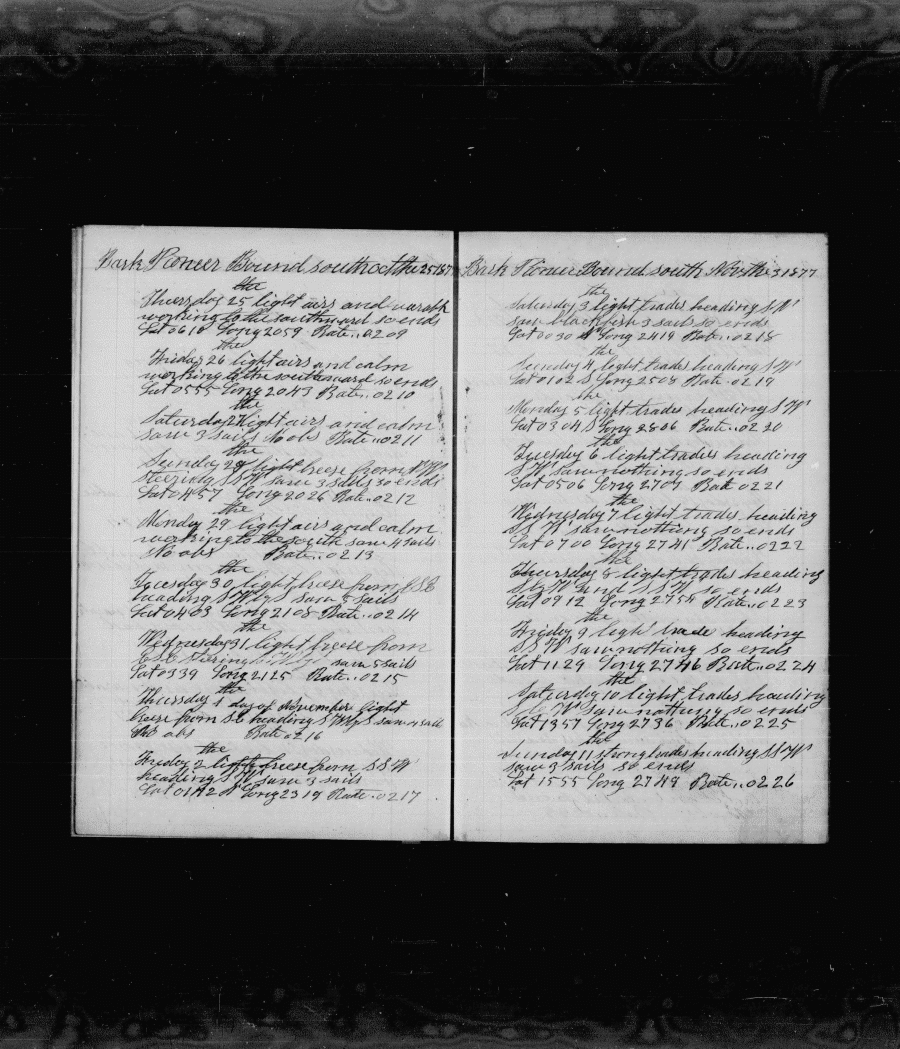 Bark Pioneer Bound south oct the 25 187
the
Thursday 25 light airs and
working to the southward so ends
Lat 06 10 Long 20 59 Rate .. 0209
the
Friday 26 light airs and calm
working to the southward so ends
Lat 05 55 Long 20 43 Rate .. 0210
the
Saturday 27 light airs and calm
saw 3 sails No obs Rate .. 0211
the
Sunday 28 light breese from
steering SSW saw 3 sails so ends
Lat 04 57 Long 20 26 Rate .. 0212
the
Monday 29 light airs and calm
working to the south saw 4 sails
No obs Rate .. 0213
the
Tuesday 30 light breese from SSE
heading SW by S saw 5 sails
Lat 04 03 Long 21 08 Rate .. 0214
the
Wednesday 31 light breese from
ESE steering saw 5 sails
Lat 03 39 Long 21 25 Rate .. 0215
the
Thursday 1 day of November light
breese from SE heading SW by S saw 4 sails
No obs Rate 0216
the
Friday 2 light breese from SSW
heading SW saw 3 sails
Lat 01 12 N Long 23 19 Rate .. 0217
Bark Pioneer Bound south Nov the 3 1877
the
Saturday 3 light trades heading SW
saw blackfish 3 sails so ends
Lat 00 30 N Long 24 19 Rate .. 0218
the
Sunday 4 light trades heading SW
Lat 01 02 S Long 25 08 Rate .. 0219
the
Monday 5 light trades heading SW
Lat 03 04 S Long 26 06 Rate .. 0220
the
Tuesday 6 light trades heading
SW saw nothing so ends
Lat 05 06 Long 27 07 Rate 0221
the
Wednesday 7 light trades heading
SSW saw nothing so ends
Lat 07 00 Long 27 41 Rate .. 0222
the
Thursday 8 light trades heading
SSW and SSW so ends
Lat 09 12 Long 27 54 Rate .. 0223
the
Friday 9 light trade heading
SSW saw nothing so ends
Lat 11 29 Long 27 46 Rate .. 0224
the
Saturday 10 light trades heading
W saw nothing so ends
Lat 13 57 Long 27 36 Rate .. 0225
the
Sunday 11 strong trades heading SSW
saw 3 sails so ends
Lat 15 55 Long 27 49 Rate .. 0226